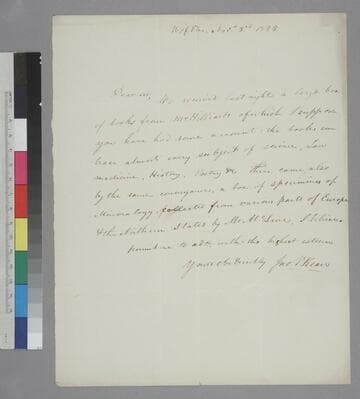 Dear sir, We received last night a large box
of books from Mr Hilliards of which I suppose
you have had some account. the books are
on almost every subject of science, Law
medicine, History, Poetry &c There came also
by the same conveyance, a box of Specimens of
Mineralogy collected from various parts of Europe
& the Northern States by Mr
permit me to add with the highest esteem
Yours